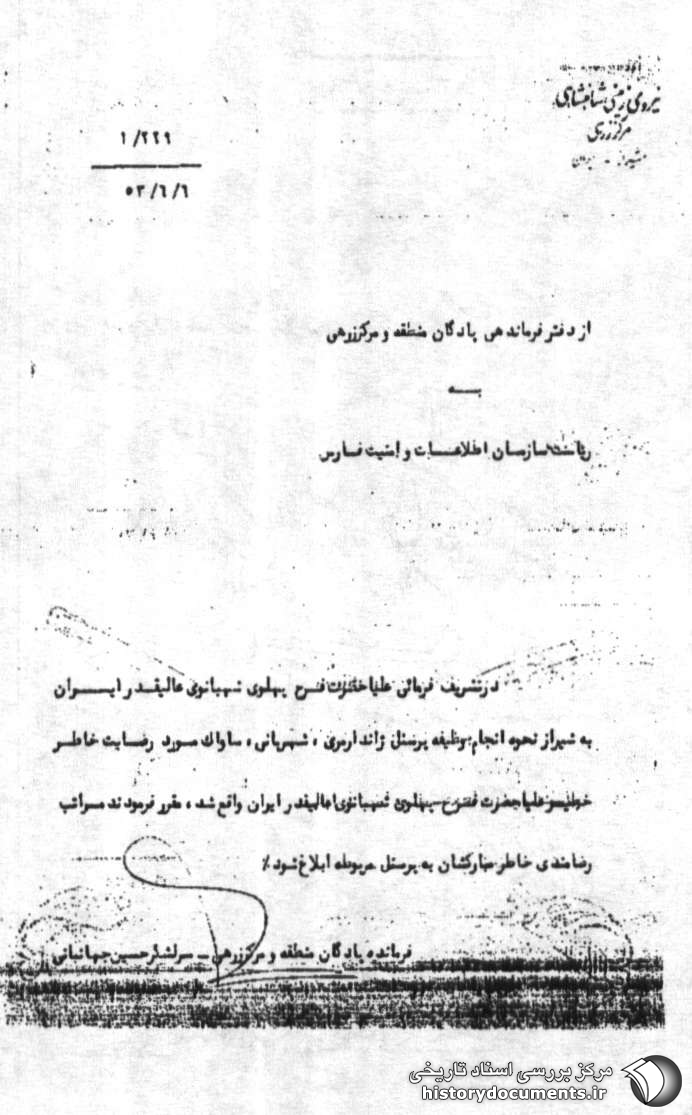 نیروی زمینی شاهنشاهی
مرکز زرهی
شیراز -
۱/۲۲۹
۵۳/۶/۶
از دفتر فرماندهی پادگان منطقه و مرکز زرهی
به
ریاست سازمان اطلاعات و امنیت فارس
در تشریف فرمائی علیاحضرت فرح پهلوی شهبانوی عالیقدر ایران
به شیراز نحوه انجام وظیفه پرسنل ژاندارمری ، شهربانی ، ساواك مورد رضایت خاطر
علیاحضرت فرح پهلوی شهبانوی عالیقدر ایران واقع شد ، مقرر فرمودند مراتب
رضامندی خاطر مبارکشان به پرسنل مربوطه ابلاغ شود ٪
فرمانده پادگان منطقه و مرکز زرهی - سرلشگر حسین جهانبانی
مرکز بررسی اسناد تاریخی
historydocuments.ir